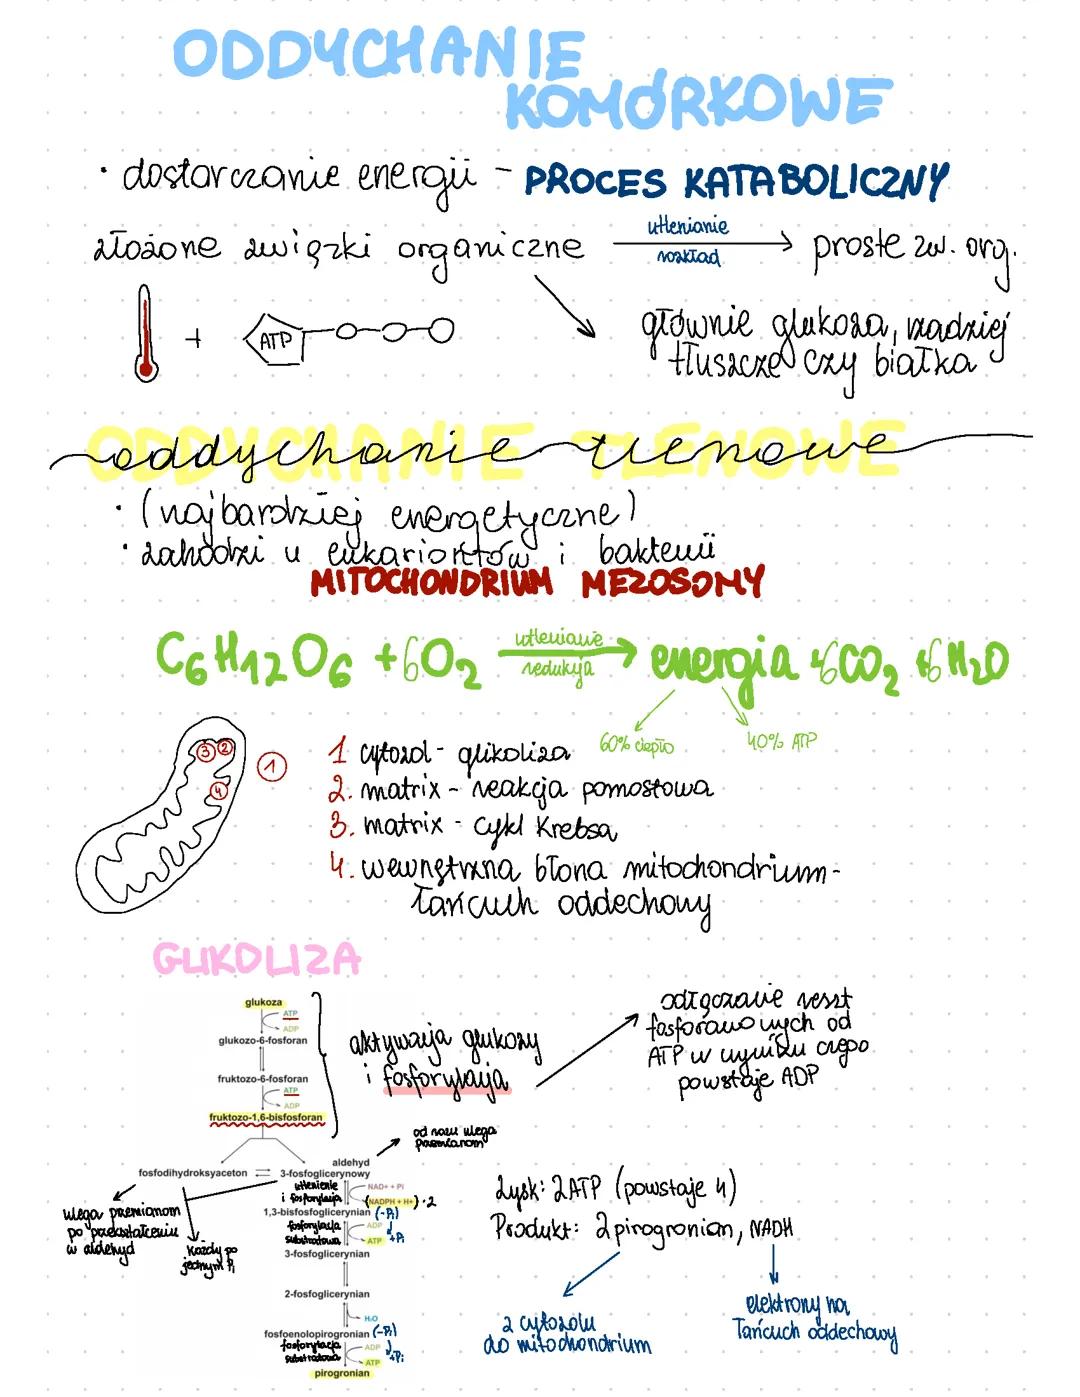 ODDYCHANIE
KOMÓRKOWE
· dostarczanie energii - PROCES KATABOLICZNY
złożone związki organiczne
utlenianie
rozkład
proste zw. org.
+ ATP
głównie glukoza, rzadziej
tłuszcze czy białka
ODDYCHANIE TLENOWE
oddychanie tlenowe
· (najbardziej energetyczne)
· zachodzi u eukariontów i bakterii
MITOCHONDRIUM MEZOSOMY
C6H12O6 + 6O2
utlenianie
redukcja
energia + 6CO2 + 6H2O
60% ciepło
40% ATP
3 2
1
4
1. cytozol - glikoliza
2. matrix - reakcja pomostowa
3. matrix - cykl Krebsa
4. wewnętrzna błona mitochondrium -
łańcuch oddechowy
GLIKOLIZA
glukoza
ATP
ADP
glukozo-6-fosforan
fruktozo-6-fosforan
ATP
ADP
fruktozo-1,6-bisfosforan
aktywacja glukozy
i fosforylacja
odłączanie reszt
fosforanowych od
ATP w wyniku czego
powstaje ADP
od razu ulega
przemianom
fosfodihydroksyaceton
aldehyd
3-fosfoglicerynowy
utlenienie
i fosforylacja
NAD+ + Pi
(NADPH + H+) · 2
1,3-bisfosfoglicerynian (-Pi)
fosforylacja
substratowa
ADP
ATP
+Pi
3-fosfoglicerynian
2-fosfoglicerynian
H2O
fosfoenolopirogronian (-Pi)
fosforylacja
substratowa
ADP
ATP
+Pi
pirogronian
ulega przemianom
po przekształceniu
w aldehyd
każdy po
jednym Pi
Zysk: 2ATP (powstaje 4)
Produkt: 2 pirogronian, NADH
z cytozolu
do mitochondrium
elektrony na
łańcuch oddechowy